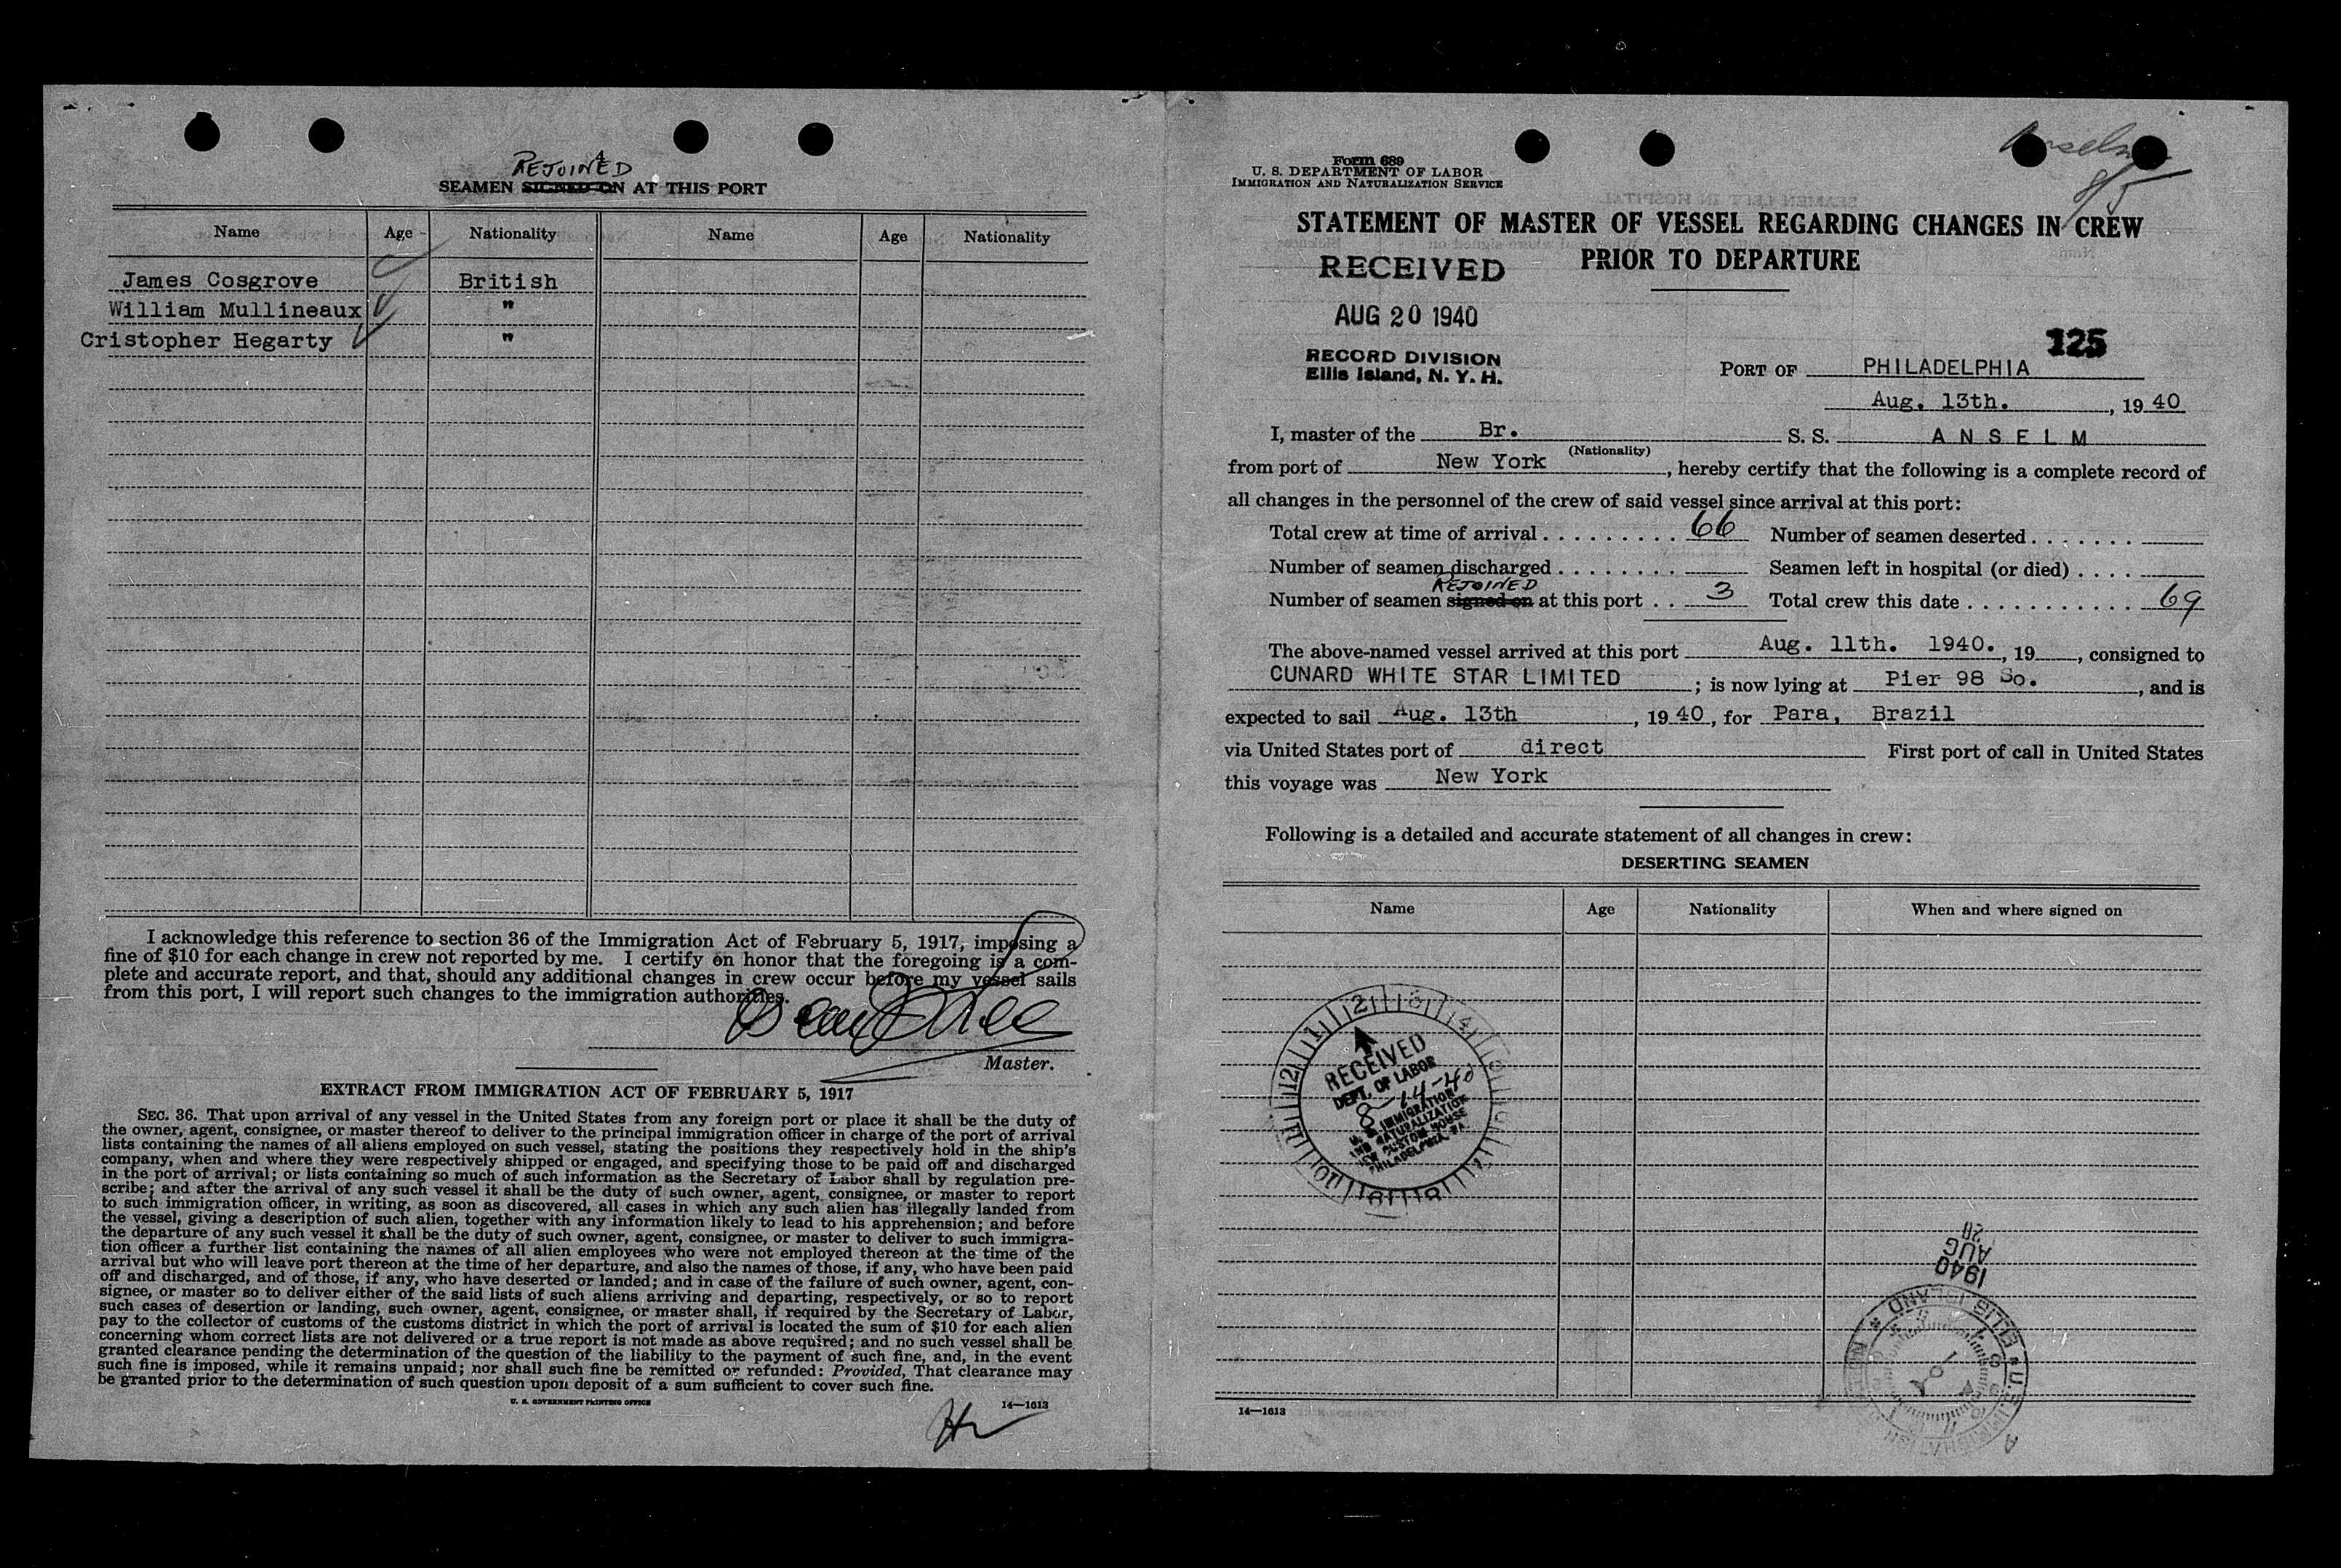 REJOINED
SEAMEN SIGNED ON AT THIS PORT
Name Age Nationality Name Age Nationality
James Cosgrove British
William Mullineaux "
Cristopher Hegarty "
I acknowledge this reference to section 36 of the Immigration Act of February 5, 1917, imposing a
fine of $10 for each change in crew not reported by me. I certify on honor that the foregoing is a com-
plete and accurate report, and that, should any additional changes in crew occur before my vessel sails
from this port, I will report such changes to the immigration authorities.
Master.
EXTRACT FROM IMMIGRATION ACT OF FEBRUARY 5, 1917
SEC. 36. That upon arrival of any vessel in the United States from any foreign port or place it shall be the duty of
the owner, agent, consignee, or master thereof to deliver to the principal immigration officer in charge of the port of arrival
lists containing the names of all aliens employed on such vessel, stating the positions they respectively hold in the ship's
company, when and where they were respectively shipped or engaged, and specifying those to be paid off and discharged
in the port of arrival; or lists containing so much of such information as the Secretary of Labor shall by regulation pre-
scribe; and after the arrival of any such vessel it shall be the duty of such owner, agent, consignee, or master to report
to such immigration officer, in writing, as soon as discovered, all cases in which any such alien has illegally landed from
the vessel, giving a description of such alien, together with any information likely to lead to his apprehension; and before
the departure of any such vessel it shall be the duty of such owner, agent, consignee, or master to deliver to such immigra-
tion officer a further list containing the names of all alien employees who were not employed thereon at the time of the
arrival but who will leave port thereon at the time of her departure, and also the names of those, if any, who have been paid
off and discharged, and of those, if any, who have deserted or landed; and in case of the failure of such owner, agent, con-
signee, or master so to deliver either of the said lists of such aliens arriving and departing, respectively, or so to report
such cases of desertion or landing, such owner, agent, consignee, or master shall, if required by the Secretary of Labor,
pay to the collector of customs of the customs district in which the port of arrival is located the sum of $10 for each alien
concerning whom correct lists are not delivered or a true report is not made as above required; and no such vessel shall be
granted clearance pending the determination of the question of the liability to the payment of such fine, and, in the event
such fine is imposed, while it remains unpaid; nor shall such fine be remitted or refunded: Provided, That clearance may
be granted prior to the determination of such question upon deposit of a sum sufficient to cover such fine.
U. S. GOVERNMENT PRINTING OFFICE 14—1613
Anselm
8/5
Form 689
U. S. DEPARTMENT OF LABOR
IMMIGRATION AND NATURALIZATION SERVICE
STATEMENT OF MASTER OF VESSEL REGARDING CHANGES IN CREW
PRIOR TO DEPARTURE
RECEIVED
AUG 20 1940
RECORD DIVISION
Ellis Island, N. Y. H.
125
PORT OF PHILADELPHIA
Aug. 13th., 1940
I, master of the Br. S. S. ANSELM
(Nationality)
from port of New York, hereby certify that the following is a complete record of
all changes in the personnel of the crew of said vessel since arrival at this port:
Total crew at time of arrival 66 Number of seamen deserted
Number of seamen discharged Seamen left in hospital (or died)
REJOINED
Number of seamen signed on at this port 3 Total crew this date 69
The above-named vessel arrived at this port Aug. 11th. 1940., 19, consigned to
CUNARD WHITE STAR LIMITED; is now lying at Pier 98 So., and is
expected to sail Aug. 13th, 1940, for Para, Brazil
via United States port of direct First port of call in United States
this voyage was New York
Following is a detailed and accurate statement of all changes in crew:
DESERTING SEAMEN
Name Age Nationality When and where signed on
RECEIVED
DEPT. OF LABOR
8-14-40
U. S. IMMIGRATION
AND NATURALIZATION
NEW CUSTOM HOUSE
PHILADELPHIA, PA.
1940
AUG
ELLIS ISLAND
14—1613